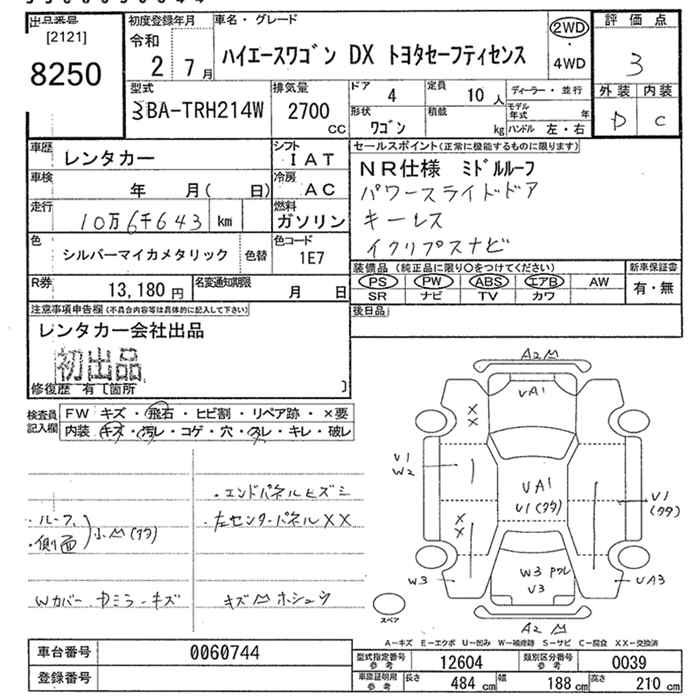 出品番号
[2121]
8250
初度登録年月
令和
2 7月
車名・グレード
ハイエースワゴン DX トヨタセーフティセンス
2WD
・
4WD
評価点
3
外装 内装
D C
型式
3BA-TRH214W
排気量
2700
cc
ドア 4
定員 10人
ディーラー・並行
形状 ワゴン
積載 kg
モデル年式 年
ハンドル 左・右
車歴 レンタカー
シフト IAT
車検 年 月( 日)
冷房 AC
走行 10万6千643 km
燃料 ガソリン
色 シルバーマイカメタリック 色替
色コード 1E7
R券 13,180円
名変通知期限 月 日
セールスポイント(正常に機能するものに限ります)
NR仕様 ミドルルーフ
パワースライドドア
キーレス
イクリプスナビ
装備品 (純正品に限り○をつけてください)
新車保証書
PS PW ABS エアB AW
SR ナビ TV カワ
有・無
後日品
注意事項申告欄(不具合内容等は具体的に記入して下さい)
レンタカー会社出品
初出品
修復歴 有〔箇所 〕
検査員記入欄
FW キズ・飛石・ヒビ割・リペア跡・×要
内装 キズ・汚レ・コゲ・穴・スレ・キレ・破レ
・エンドパネルヒズミ
・左センターパネルXX
・ルーフ
・側面
小凹(ワタ)
Wカバー・ドミラーキズ
キズ凹ホシュウ
A2凹
VA1
X
X
V1
W2
UA1
U1(ワタ)
V1
(ワタ)
X
X
W3
W3 Pワレ
V3
UA3
A2凹
スペア
A-キズ E-エクボ U-凹み W-補修跡 S-サビ C-腐食 XX-交換済
車台番号 0060744
登録番号
型式指定番号参考 12604
類別区分番号参考 0039
車庫証明用参考 長さ 484cm 幅 188cm 高さ 210cm